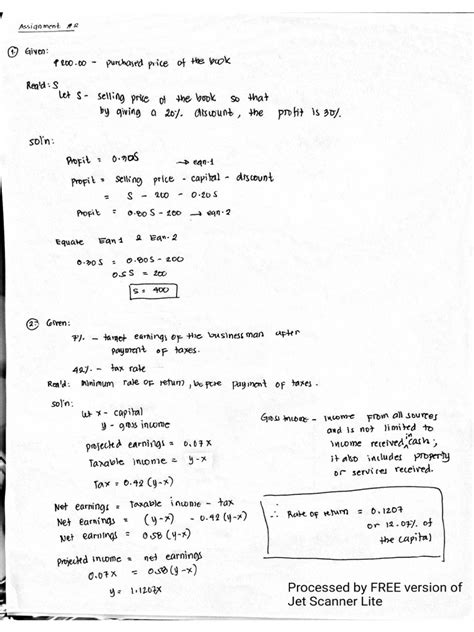 Assignment #2
1. Given:
₱200.00 - purchased price of the book
Req'd: S
Let S - selling price of the book so that
by giving a 20% discount, the profit is 30%.
sol'n:
Profit = 0.30S → eqn.1
Profit = Selling price - capital - discount
= S - 200 - 0.20S
Profit = 0.80S - 200 → eqn.2
Equate Eqn 1 & Eqn. 2
0.30S = 0.80S - 200
0.5S = 200
S = 400
2. Given:
7% - target earnings of the businessman after
payment of taxes.
42% - tax rate
Req'd: Minimum rate of return, before payment of taxes.
sol'n:
Let x - capital
y - gross income
projected earnings = 0.07x
Taxable income = y-x
Tax = 0.42(y-x)
Gross Income - income from all sources
and is not limited to
income received in cash;
it also includes property
or services received.
Net earnings = Taxable income - tax
Net earnings = (y-x) - 0.42(y-x)
Net earnings = 0.58(y-x)
projected income = net earnings
0.07x = 0.58(y-x)
y = 1.1207x
∴ Rate of return = 0.1207
or 12.07% of
the capital
Processed by FREE version of
Jet Scanner Lite